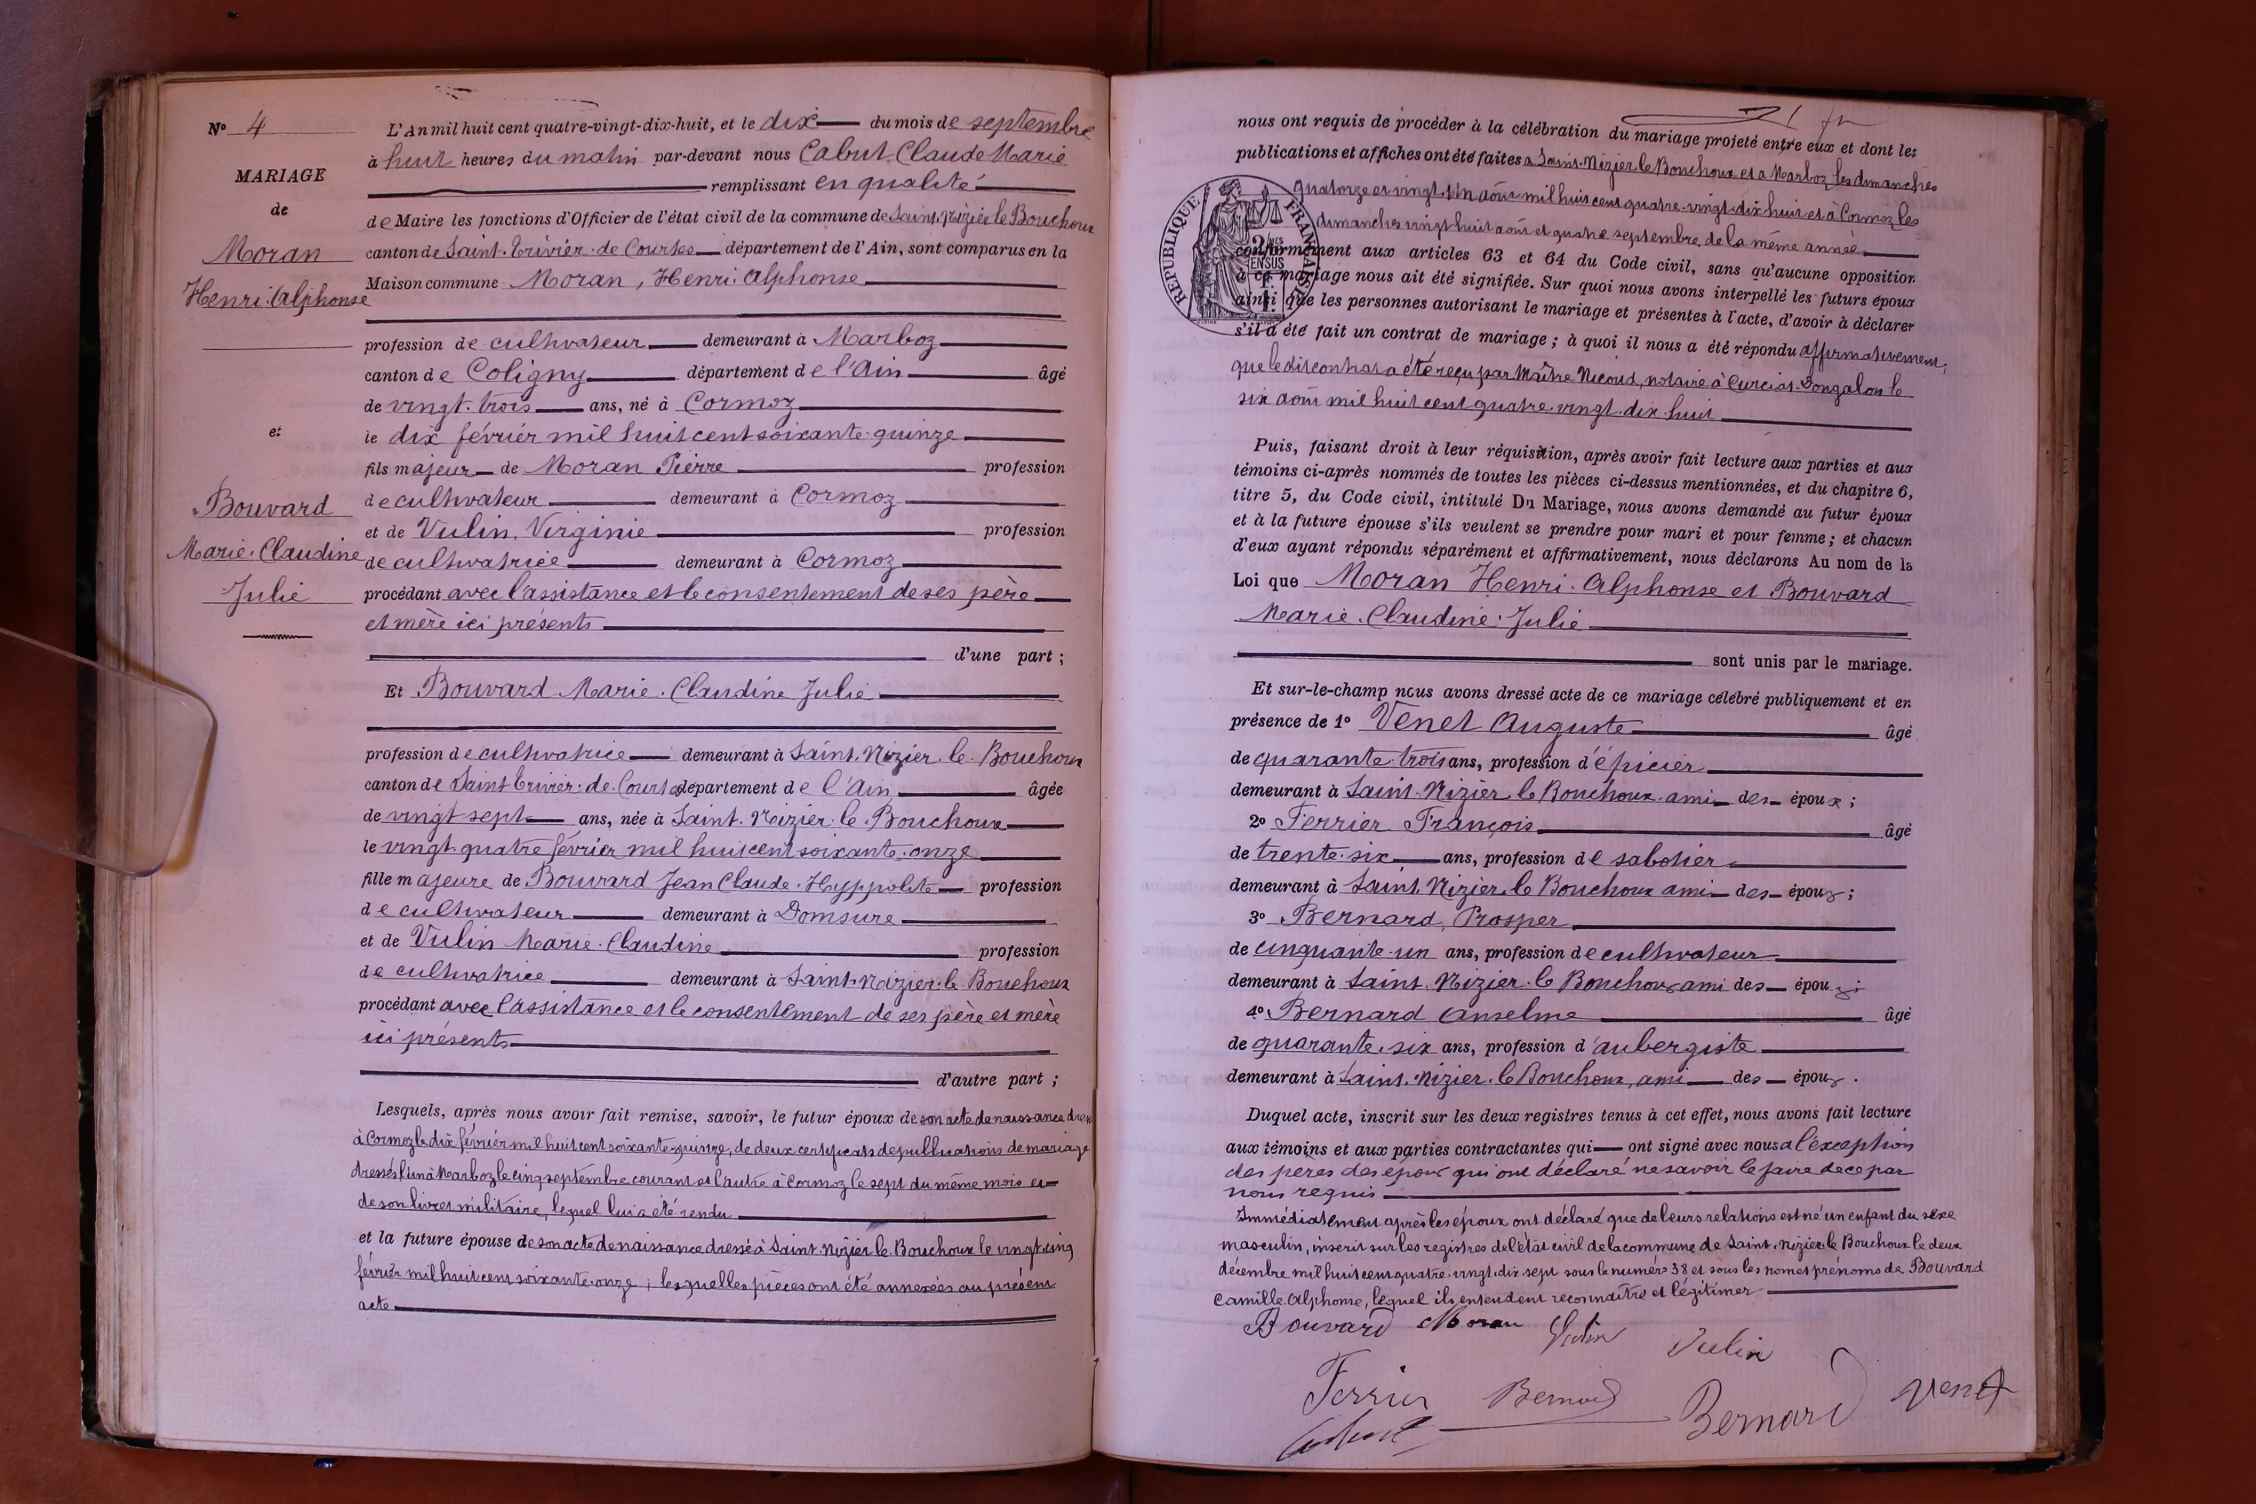 N° 4
MARIAGE
de
Moran
Henri. Alphonse
et
Bouvard
Marie. Claudine
Julie
L'An mil huit cent quatre-vingt-dix-huit, et le dix du mois de septembre
à huit heures du matin par-devant nous Cabut, Claude Marie
remplissant en qualité
de Maire les fonctions d'Officier de l'état civil de la commune de Saint. Nizier le Bouchoux
canton de Saint. Trivier. de Courtes département de l'Ain, sont comparus en la
Maison commune Moran, Henri. Alphonse
profession de cultivateur demeurant à Marboz
canton de Coligny département de l'Ain âgé
de vingt. trois ans, né à Cormoz
le dix février mil huit cent soixante. quinze
fils majeur de Moran Pierre profession
de cultivateur demeurant à Cormoz
et de Vulin, Virginie profession
de cultivatrice demeurant à Cormoz
procédant avec l'assistance et le consentement de ses père
et mère ici présents
d'une part ;
Et Bouvard Marie. Claudine Julie
profession de cultivatrice demeurant à Saint. Nizier. le. Bouchoux
canton de Saint Trivier. de. Courtes département de l'Ain âgée
de vingt sept ans, née à Saint. Nizier. le. Bouchoux
le vingt quatre février mil huit cent soixante. onze
fille majeure de Bouvard Jean Claude. Hyppolite profession
de cultivateur demeurant à Domsure
et de Vulin Marie. Claudine profession
de cultivatrice demeurant à Saint. Nizier. le Bouchoux
procédant avec l'assistance et le consentement de ses père et mère
ici présents
d'autre part ;
Lesquels, après nous avoir fait remise, savoir, le futur époux de son acte de naissance dressé
à Cormoz le dix février mil huit cent soixante-quinze, de deux certificats de publications de mariage
dressés l'un à Marboz le cinq septembre courant et l'autre à Cormoz le sept du même mois et
de son livret militaire, lequel lui a été rendu
et la future épouse de son acte de naissance dressé à Saint. Nizier le. Bouchoux le vingt cinq
février mil huit cent soixante. onze ; lesquelles pièces ont été annexées au présent
acte
nous ont requis de procéder à la célébration du mariage projeté entre eux et dont les
publications et affiches ont été faites a Saint. Nizier le Bouchoux et a Marboz les dimanches
quatorze et vingt. un août mil huit cent quatre. vingt. dix huit et à Cormoz les
dimanches vingt huit août et quatre septembre de la même année
conformément aux articles 63 et 64 du Code civil, sans qu'aucune opposition
à ce mariage nous ait été signifiée. Sur quoi nous avons interpellé les futurs époux
ainsi que les personnes autorisant le mariage et présentes à l'acte, d'avoir à déclarer
s'il a été fait un contrat de mariage ; à quoi il nous a été répondu affirmativement,
que le dit contrat a été reçu par Maître Nicoud, notaire à Curciat. Dongalon le
six août mil huit cent quatre. vingt. dix huit
RÉPUBLIQUE FRANÇAISE
Puis, faisant droit à leur réquisition, après avoir fait lecture aux parties et aux
témoins ci-après nommés de toutes les pièces ci-dessus mentionnées, et du chapitre 6,
titre 5, du Code civil, intitulé Du Mariage, nous avons demandé au futur époux
et à la future épouse s'ils veulent se prendre pour mari et pour femme ; et chacun
d'eux ayant répondu séparément et affirmativement, nous déclarons Au nom de la
Loi que Moran Henri. Alphonse et Bouvard
Marie. Claudine. Julie
sont unis par le mariage.
Et sur-le-champ nous avons dressé acte de ce mariage célébré publiquement et en
présence de 1° Venet Auguste âgé
de quarante. trois ans, profession d'épicier
demeurant à Saint. Nizier. le Bouchoux. ami des époux ;
2° Ferrier François âgé
de trente. six ans, profession de sabotier
demeurant à Saint. Nizier. le Bouchoux ami des époux ;
3° Bernard, Prosper
de cinquante. un ans, profession de cultivateur
demeurant à Saint. Nizier. le Bouchoux ami des époux ;
4° Bernard Anselme âgé
de quarante. six ans, profession d'aubergiste
demeurant à Saint. Nizier. le Bouchoux, ami des époux.
Duquel acte, inscrit sur les deux registres tenus à cet effet, nous avons fait lecture
aux témoins et aux parties contractantes qui ont signé avec nous a l'exception
des pères des époux qui ont déclaré ne savoir le faire de ce par
nous requis
Immédiatement après les époux ont déclaré que de leurs relations est né un enfant du sexe
masculin, inscrit sur les registres de l'état civil de la commune de Saint. Nizier. le Bouchoux le deux
décembre mil huit cent quatre. vingt. dix. sept sous le numéro 38 et sous les nom et prénoms de Bouvard
Camille. Alphonse, lequel ils entendent reconnaître et légitimer
Bouvard Moran Vulin Vulin
Ferrier Bernard Bernard Venet
Cabut